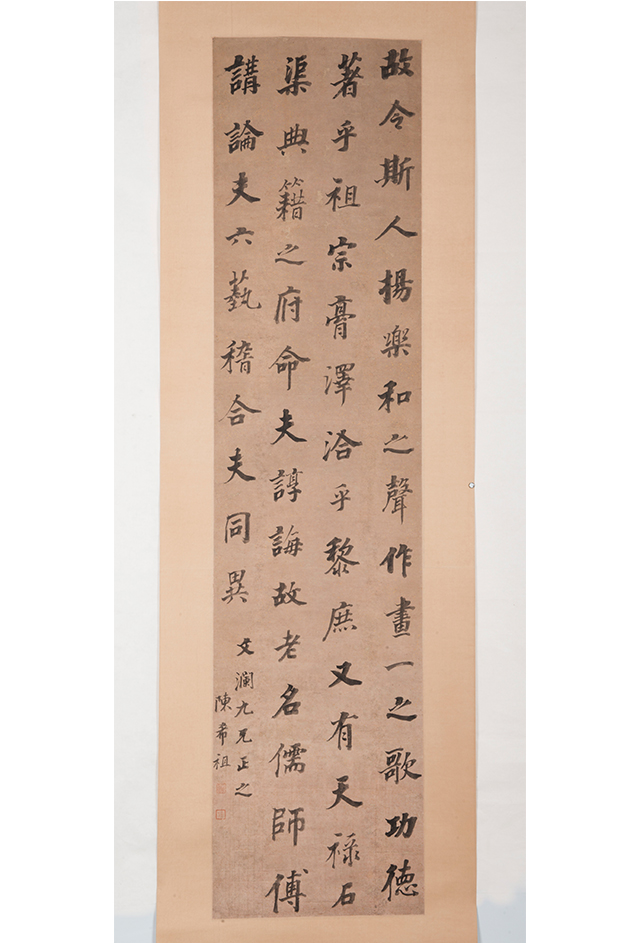 故令斯人揚樂和之聲作畫一之歌功德
著乎祖宗膏澤洽乎黎庶又有天祿石
渠典籍之府命夫諄誨故老名儒師傅
講論夫六藝稽合夫同異
文瀾九兄正之
陳希祖